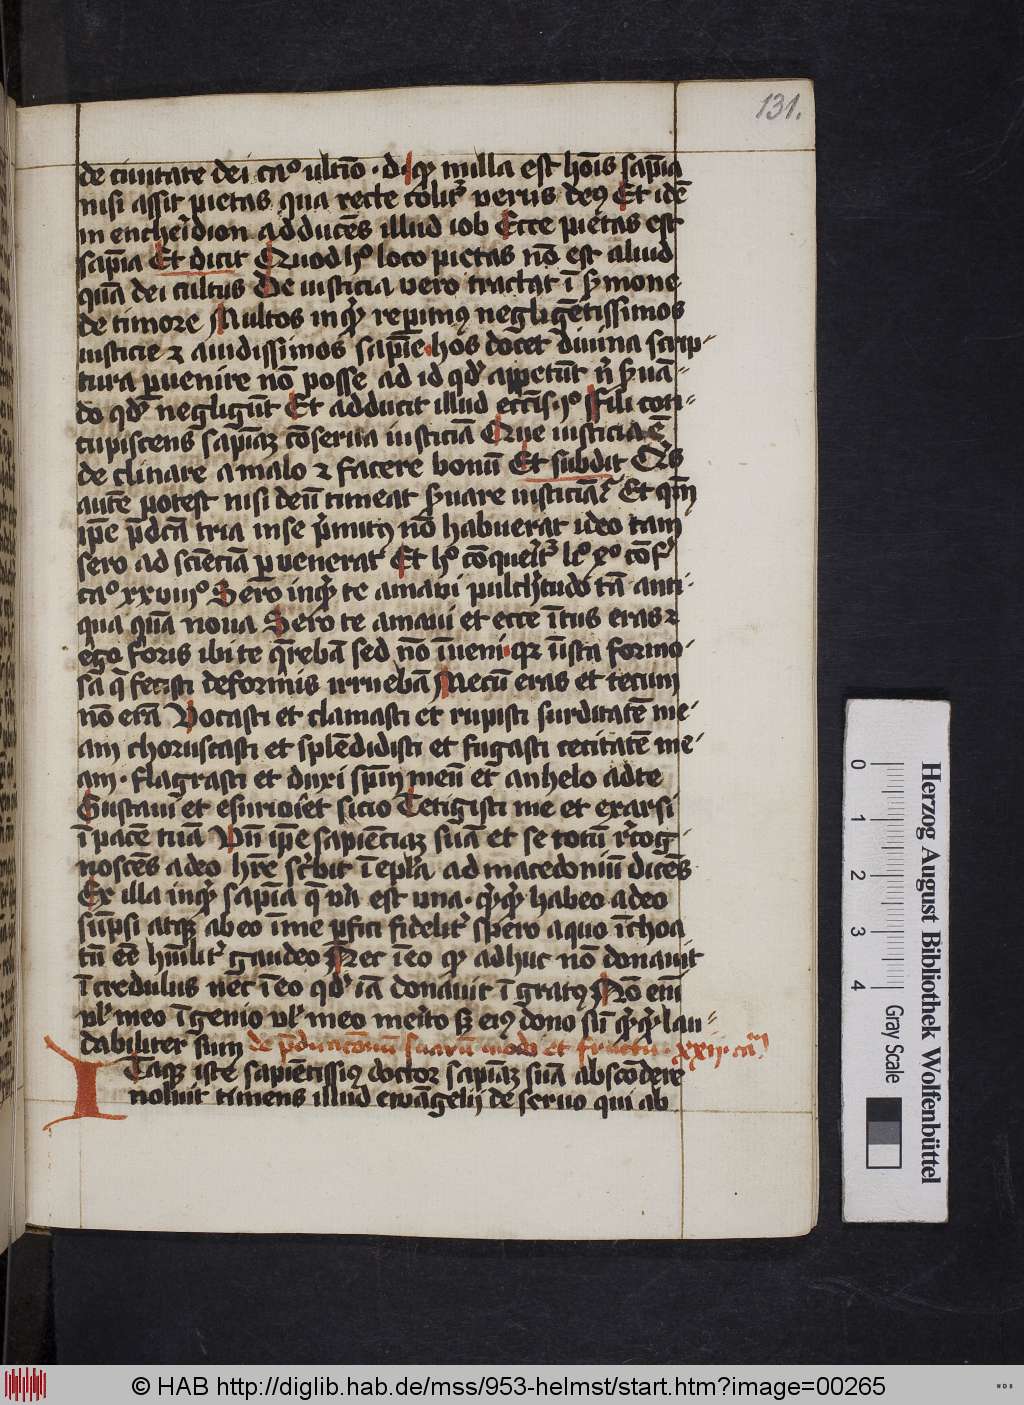 131.
de ciuitate dei ca⁰ ultīo · d· qꝫ nulla est hoīs sapīa
nisi assit pietas qua recte colit᷑ verus deꝰ Et idē
in encheridion adducēs illud iob Ecce pietas est
sapīa Et dicit Quod h⁰ loco pietas nō est aliud
quā dei cultus De iusticia vero tractat ī s̄mone
de timore Multos inqͥt repimꝰ negligētissimos
iusticie ⁊ auidissimos sapīe hos docet diuina scrip⸗
tura ꝑuenire nō posse ad id qd̓ appetūt nͥ s̄uā⸗
do qd̓ negligūt Et adducit illud ecc̄is· i⁰ Fili con⸗
cupiscens sapīaꝫ cōserua iusticiā Que iusticia ē
declinare a malo ⁊ facere bonū Et subdit Qͥs
autē potest nisi deū timeat s̄uare iusticiā Et qm̄
ip̄e p̄dc̄a tria in se pͥmitꝰ nō habuerat ideo tam
sero ad sciēciā ꝑuenerat Et h⁰ cōquerit᷑ lͥ x⁰ cōf᷑
ca⁰ xxviii⁰ Sero inqͥt te amaui pulchͥtudo tā anti⸗
qua quā noua Sero te amaui et ecce ītus eras ⁊
ego foris ibi te q̄rebā sed nō īueni· qꝛ ī ista formo⸗
sa q̄ fecisti deformis irruebā Mecū eras et tecum
nō erā Vocasti et clamasti et rupisti surditatē me⸗
am choruscasti et splēdidisti et fugasti cecitatē me⸗
am· flagrasti et duxi sp̄m meū et anhelo ad te
Gustaui et esurio et sicio Tetigisti me et exarsi
ī pacē tuā Vn̄ ip̄e sapiēciaꝫ suā et se totū recog⸗
noscēs a deo hr̄e scͥbit ī epl̄a ad macedoniū dicēs
Ex illa inqͥt sapīa q̄ vͥa est una· qͥcqͥd habeo a deo
sūpsi atqꝫ ab eo ī me ꝑfici fidelit᷑ spero a quo īchoa
tū eē hūilit᷑ gaudeo Nec ī eo qꝫ adhuc nō donauit
īcredulus nec ī eo qd̓ iā donauit ī gratꝰ Nō eni
vl̓ meo īgenio vl̓ meo meito sꝫ eiꝰ dono sū qͥcqͥd lau⸗
dabiliter sum de p̄dicacionū suarū modo et fructu· xxii· ca᷑
ITaqꝫ iste sapiētissiꝰ doctor sapīaꝫ suā abscōdere
noluit timens illud ewāgelij de seruo qui ab
Herzog August Bibliothek Wolfenbüttel
0 1 2 3 4
Gray Scale
© HAB http://diglib.hab.de/mss/953-helmst/start.htm?image=00265